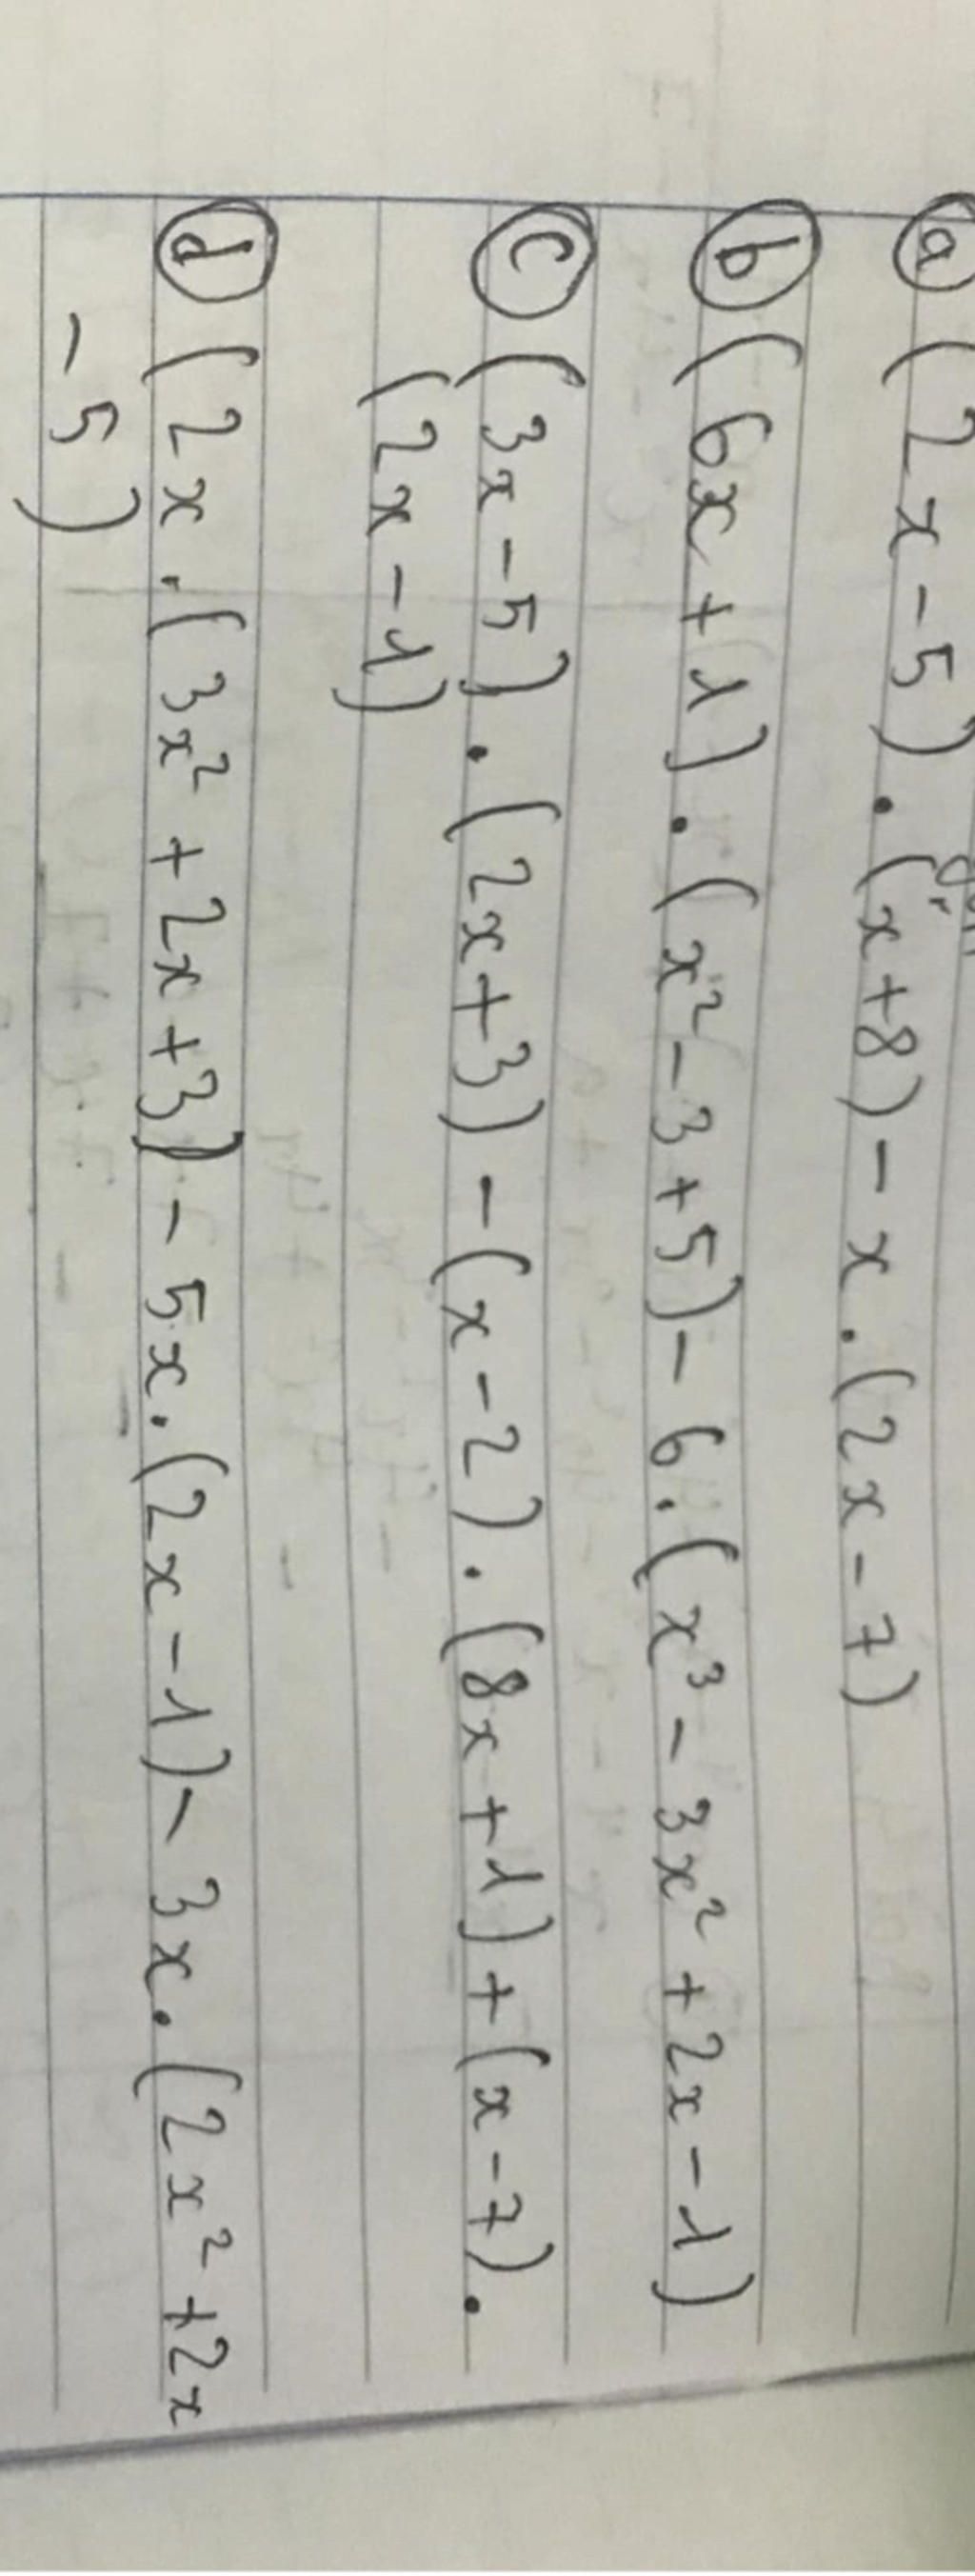 a) (2x-5).(x+8)-x.(2x-7)
b) (6x+1).(x²-3+5)-6.(x³-3x²+2x-1)
c) (3x-5).(2x+3)-(x-2).(8x+1)+(x-7).
(2x-1)
d) (2x.(3x²+2x+3)-5x.(2x-1)-3x.(2x²+2x
-5)